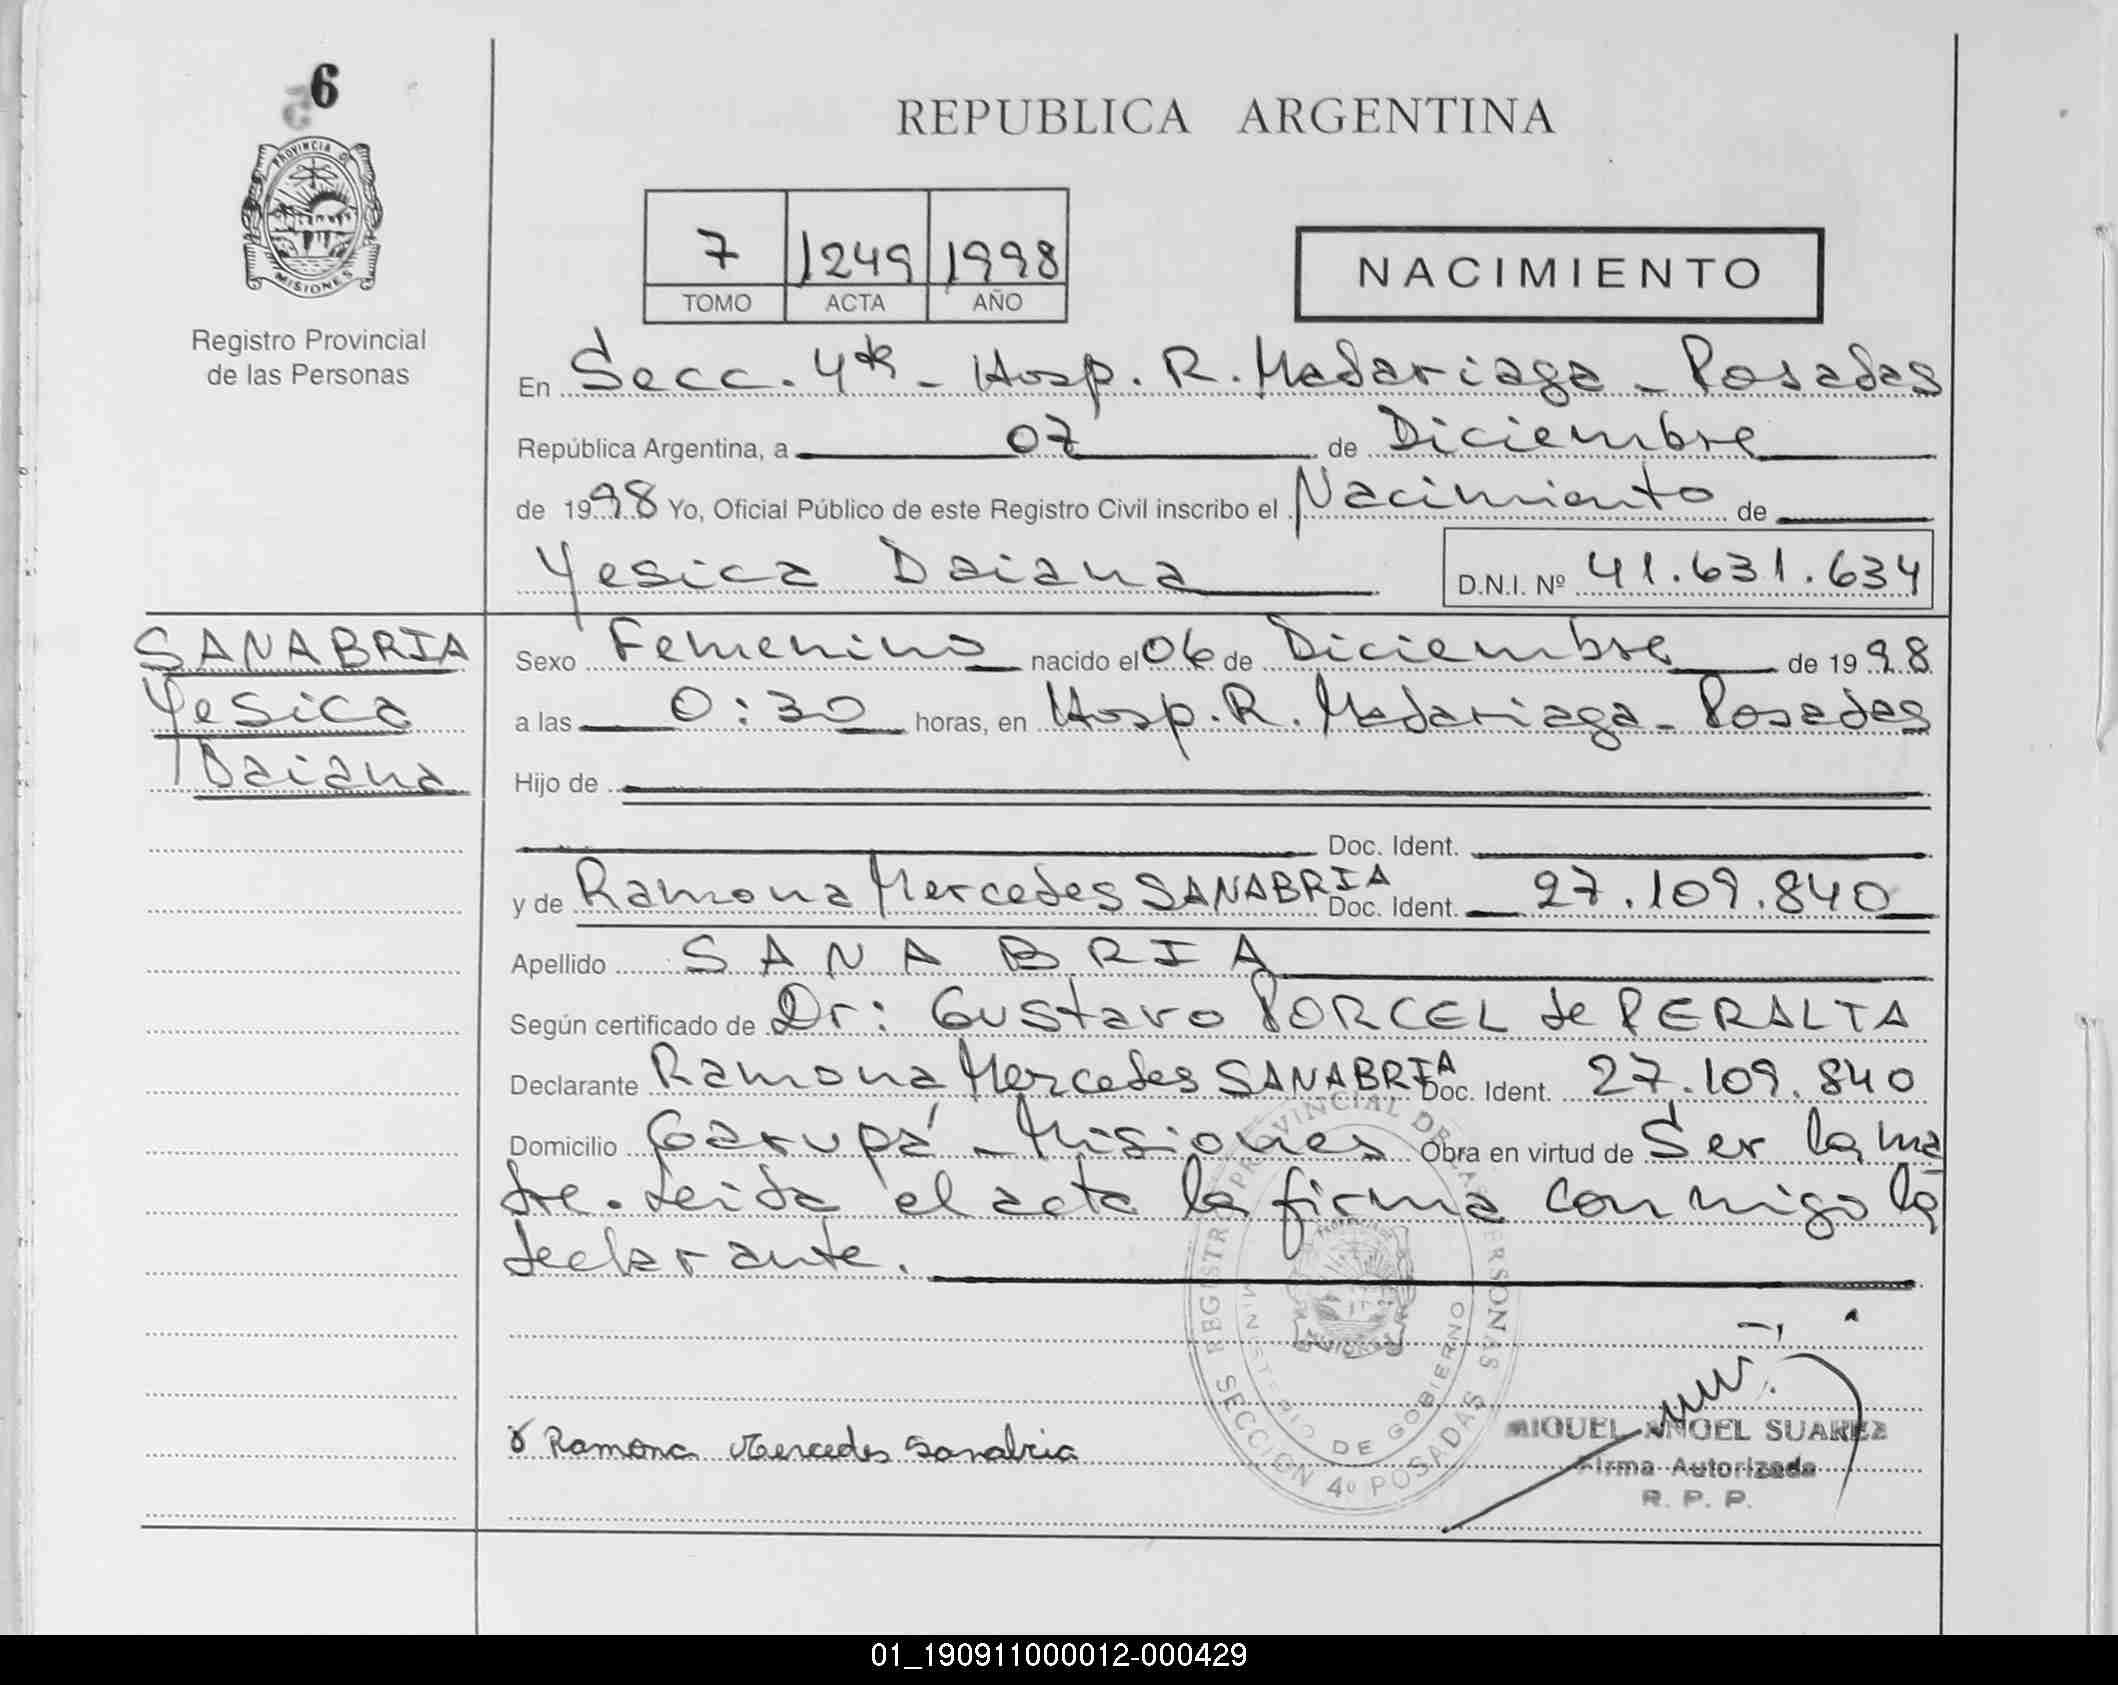 6
PROVINCIA D
MISIONES
Registro Provincial
de las Personas
REPUBLICA ARGENTINA
7 1249 1998
TOMO ACTA AÑO
NACIMIENTO
En Secc. 4ta - Hosp. R. Madariaga - Posadas
República Argentina, a 07 de Diciembre
de 1998 Yo, Oficial Público de este Registro Civil inscribo el Nacimiento de
Yesica Daiana D.N.I. Nº 41.631.634
SANABRIA
Yesica
Daiana
Sexo Femenino nacido el 06 de Diciembre de 1998
a las 0:30 horas, en Hosp. R. Madariaga - Posadas
Hijo de
Doc. Ident.
y de Ramona Mercedes SANABRIA Doc. Ident. 27.109.840
Apellido SANABRIA
Según certificado de Dr: Gustavo PORCEL de PERALTA
Declarante Ramona Mercedes SANABRIA Doc. Ident. 27.109.840
Domicilio Garupá - Misiones Obra en virtud de Ser la ma
dre. Leida el acta la firma conmigo la
declarante.
REGISTRO PROVINCIAL DE LAS PERSONAS
MINISTERIO DE GOBIERNO
SECCION 4º POSADAS
Ramona Mercedes Sanabria
MIGUEL ANGEL SUAREZ
Firma Autorizada
R. P. P.
01_190911000012-000429